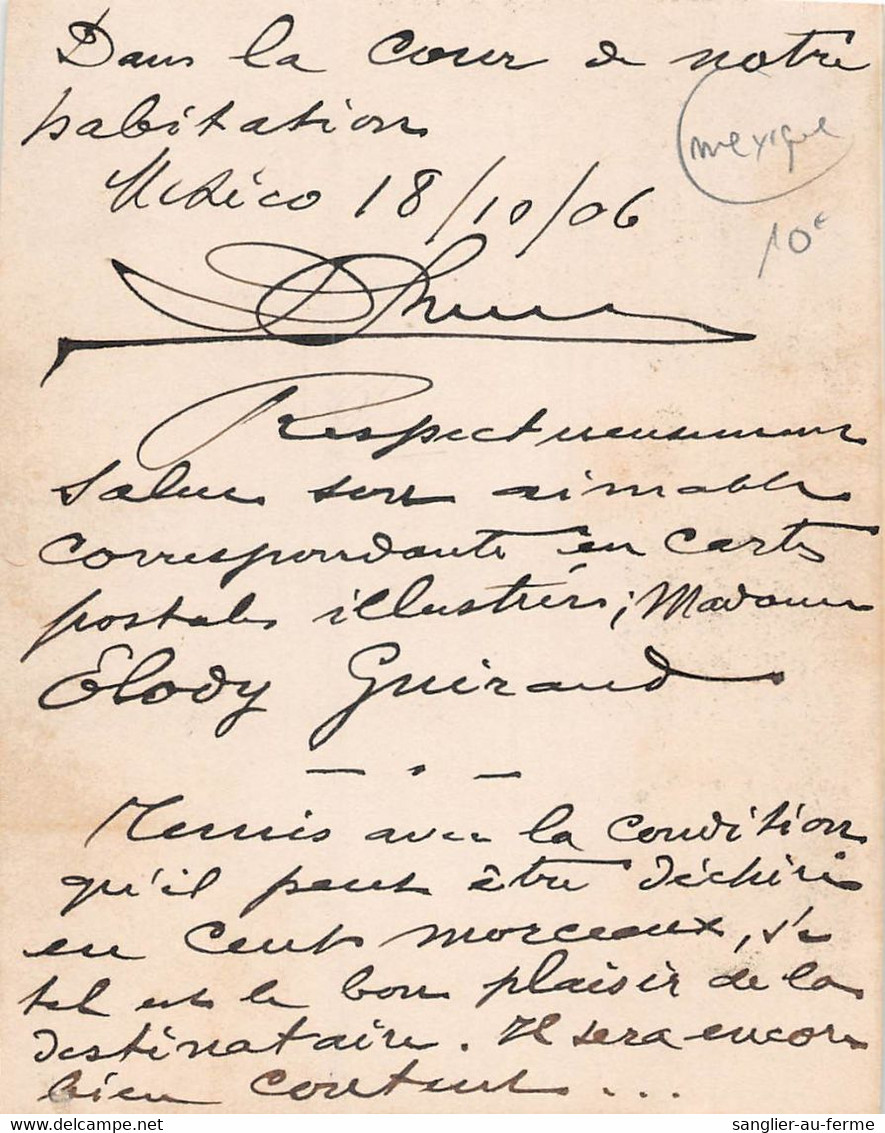 Dans la Cour de notre
habitation
mexique
México 18/10/06
10€
Respectueusement
Salue son aimable
correspondante en cartes
postales illustrées; Madame
Élody Guiraud
— . —
Remis avec la condition
qu'il peut être déchiré
en Cents morceaux, si
tel est le bon plaisir de la
destinataire. Il sera encore
bien content...
sanglier-au-ferme